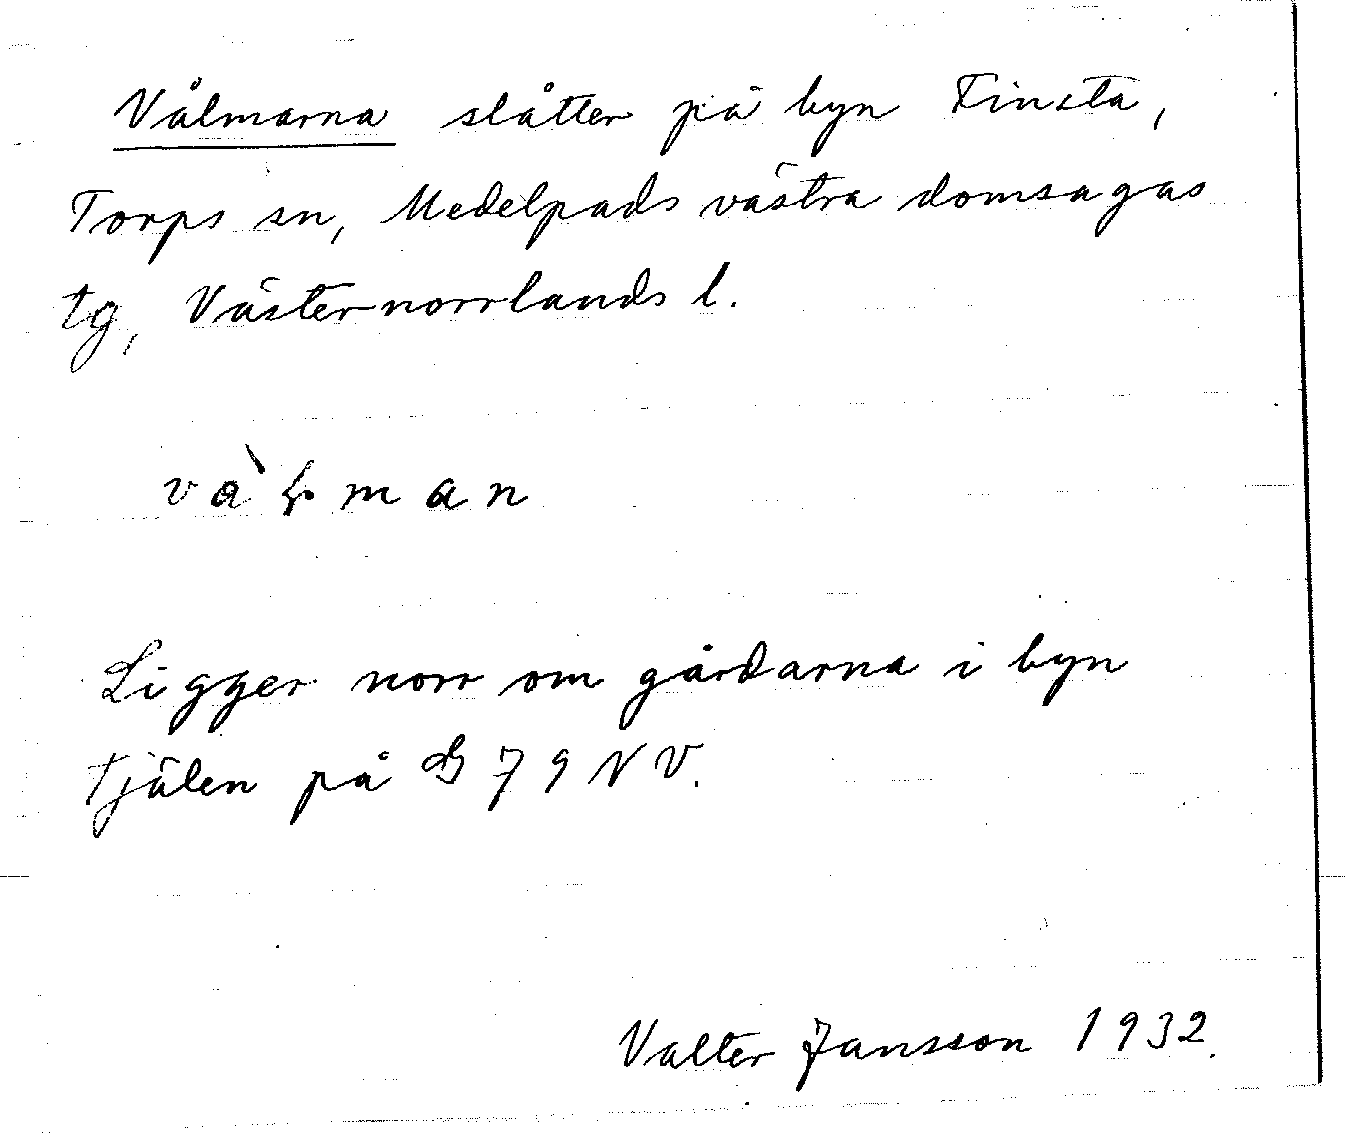 Vålmarna slåtter på byn Finsta,
Torps sn, Medelpads västra domsagas
tg, Västernorrlands l.
Ligger norr om gårdarna i byn
Tjälen på B 79 NV.
Valter Jansson 1932.